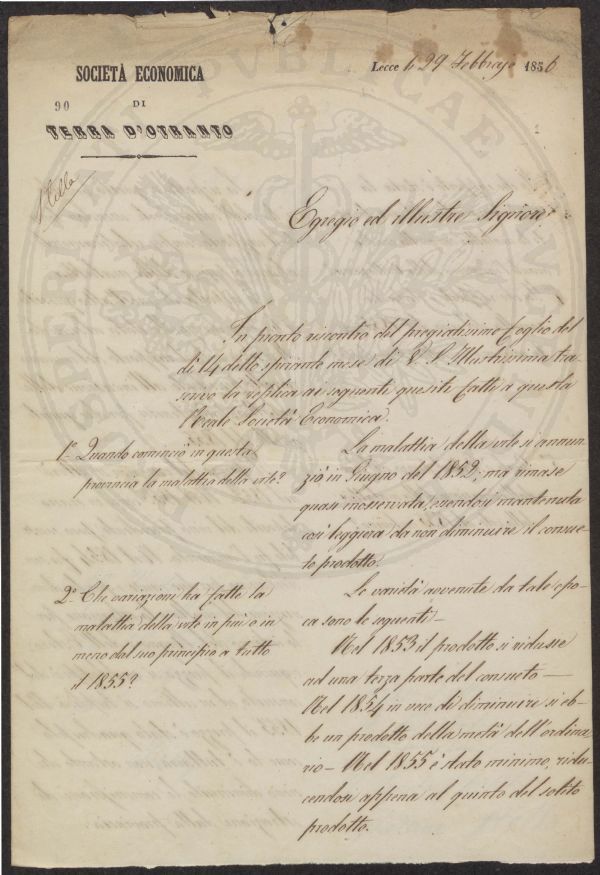 SOCIETÀ ECONOMICA
90
DI
TERRA D'OTRANTO
Lecce li 29 Febbrajo 1856
Egregio ed illustre Signore
In pronto riscontro del pregiatissimo foglio del
dì 14 dello spirante mese di V. S. Illustrissima tra-
scrivo la replica ai seguenti quesiti fatti a questa
Reale Società Economica.
1º Quando cominciò in questa
provincia la malattia della vite?
La malattia della vite si annun-
ziò in Giugno del 1852; ma rimase
quasi inosservata, essendosi mantenuta
così leggiera da non diminuire il consue-
to prodotto.
2º Che variazioni ha fatte la
malattia della vite in più o in
meno dal suo principio a tutto
il 1855?
Le varietà avvenute da tale epo-
ca sono le seguenti—
Nel 1853 il prodotto si ridusse
ad una terza parte del consueto—
Nel 1854 in vece di diminuire si eb-
be un prodotto della metà dell'ordina-
rio— Nel 1855 è stato minimo, ridu-
cendosi appena al quinto del solito
prodotto.